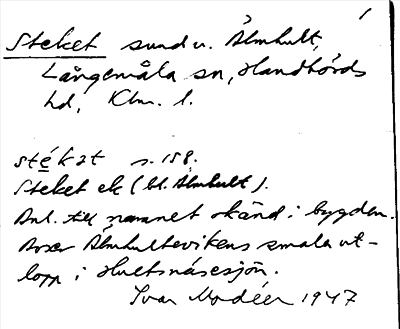 1
Steket sund v. Älmhult,
Långemåla sn, Handbörds
hd, Klm. l.
stékat s. 158.
Steket ek (bl. Älmhult).
Anl. till namnet okänd i bygden.
Avser Älmhultevikens smala ut-
lopp i Hultsnäsesjön.
Ivar Modéer 1947